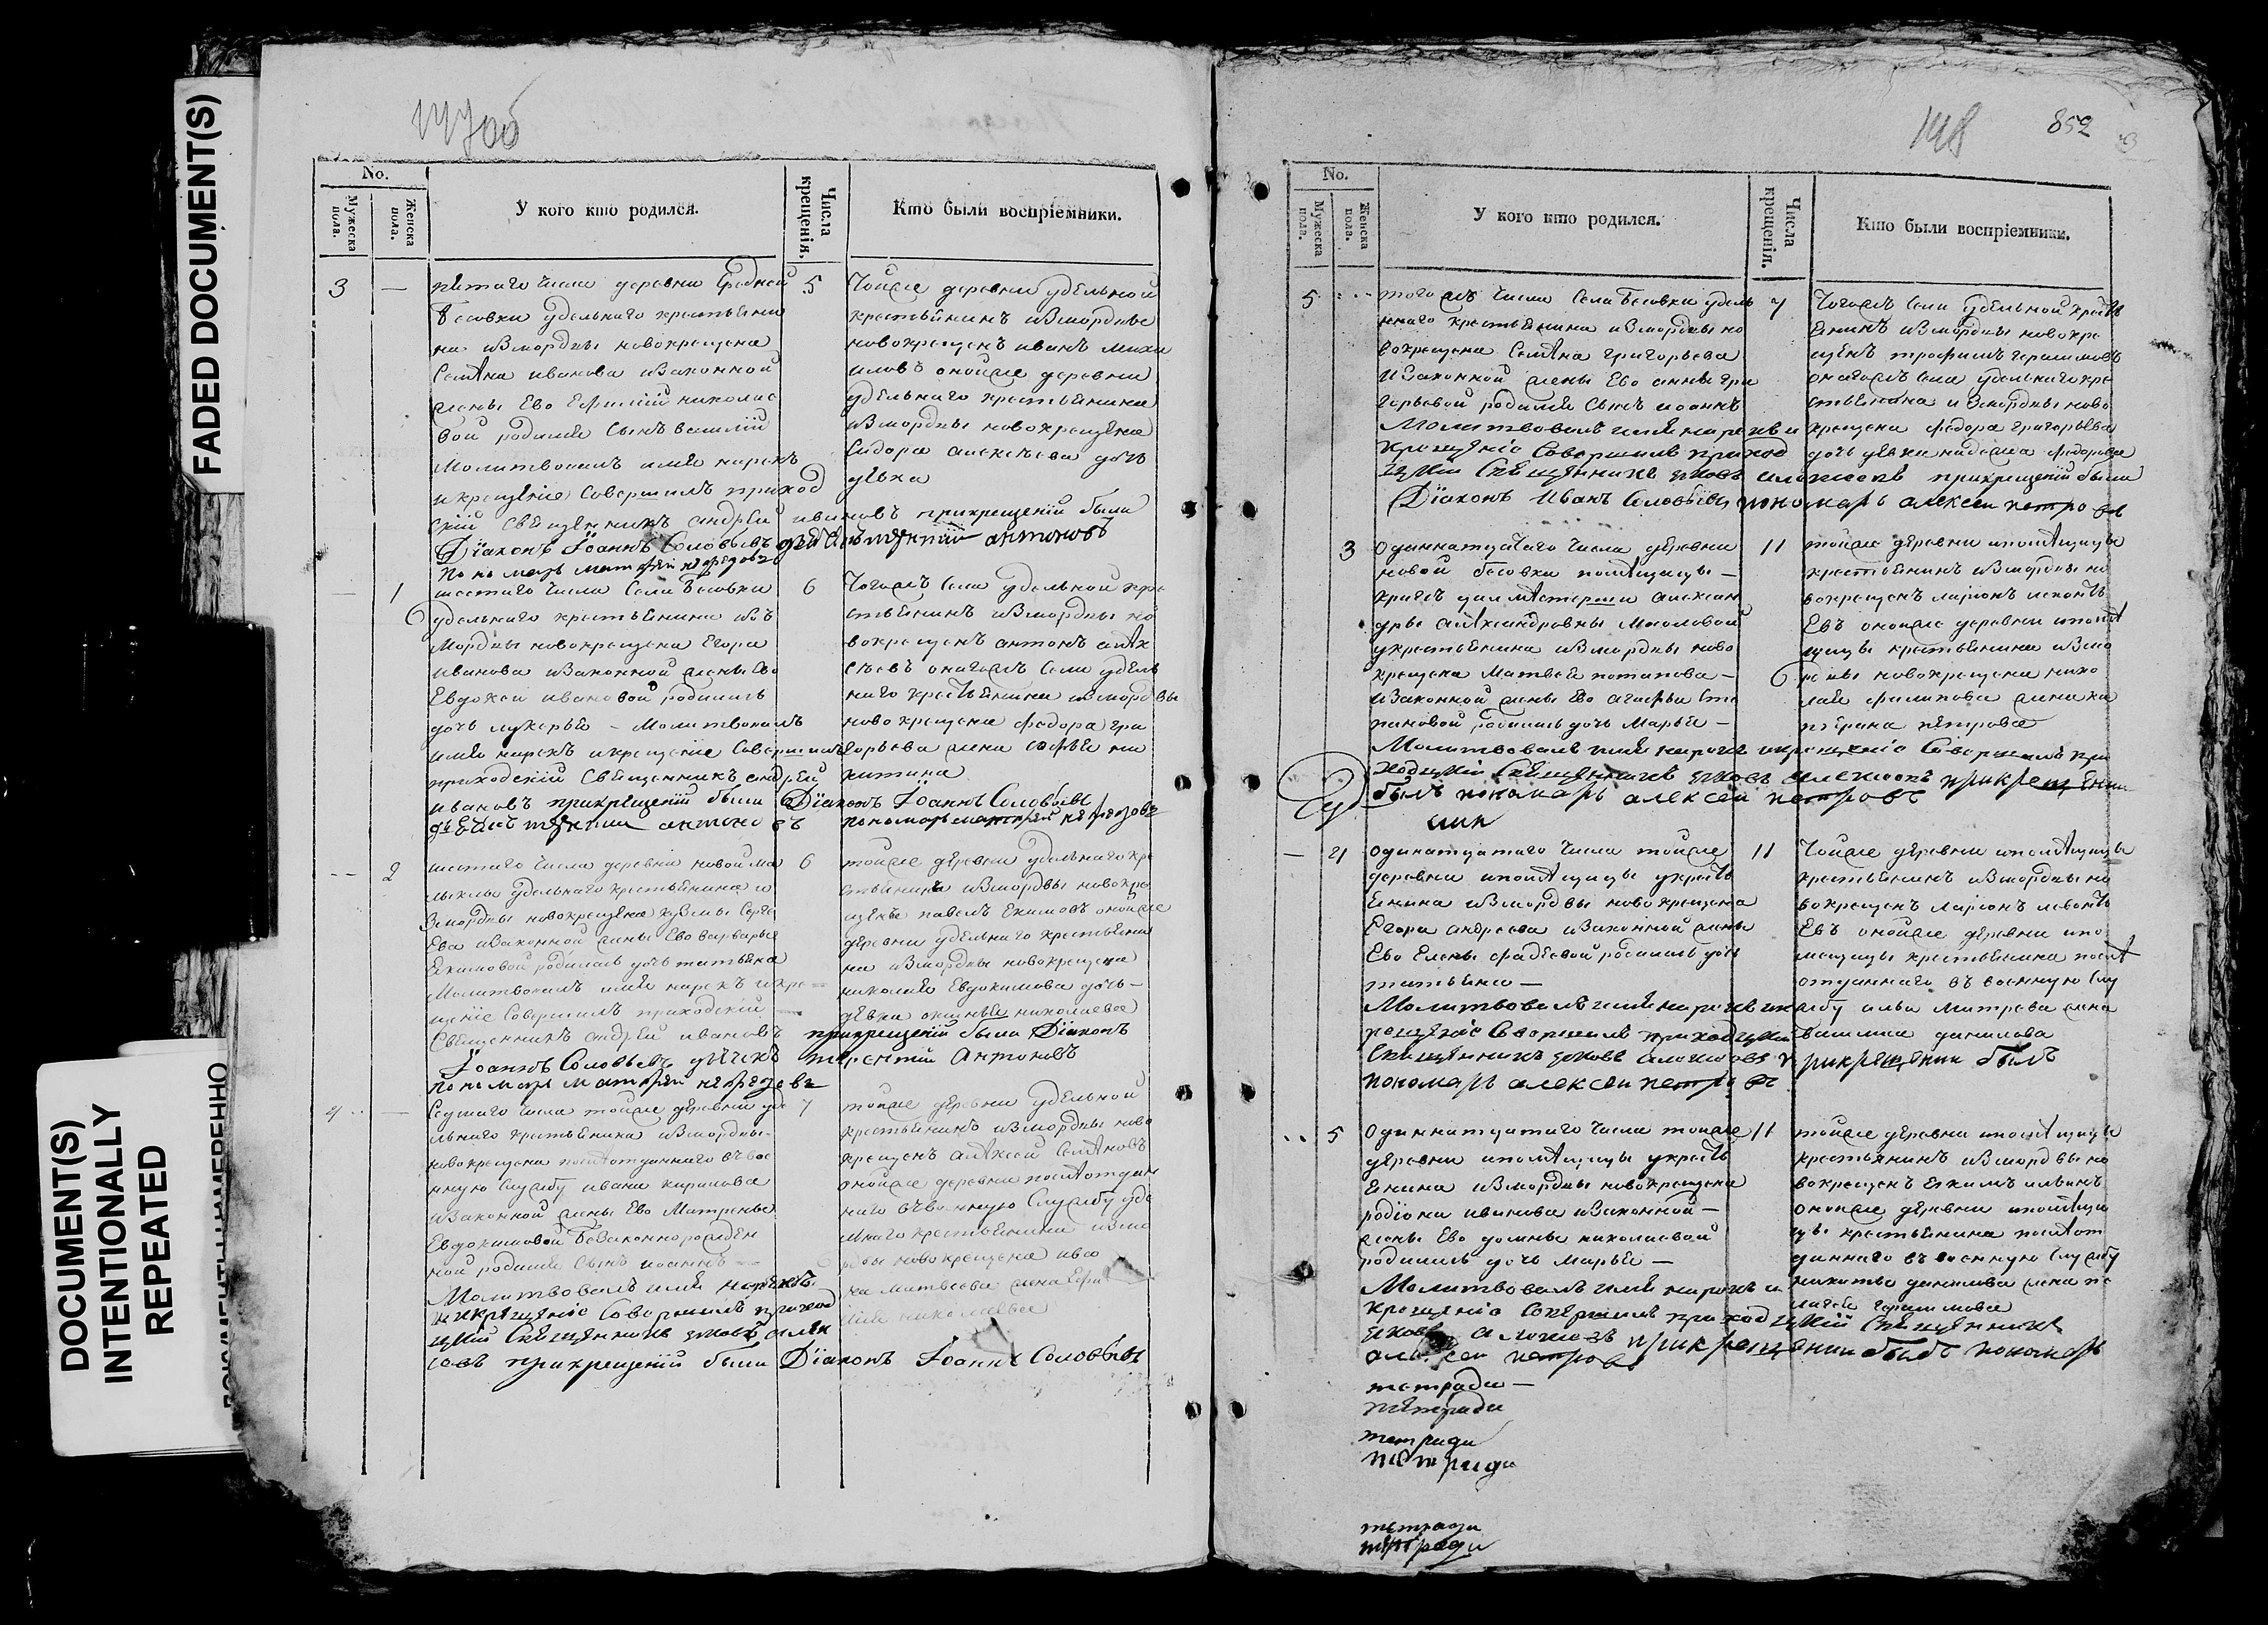 FADED DOCUMENT(S)
DOCUMENT(S)
INTENTIONALLY
REPEATED
No.
Мужеска пола.
Женска пола.
У кого кто родился.
Числа крещенія.
Кто были воспріемники.
3 — пятаго числа деревни Средней 5
Бесовки удельнаго крестьяни
на измордвы новокрещена
Семена иванова изаконной
жены Ево Ефимiи николае
вой родился Сынъ василiй
Молитвовалъ имя нарекъ
икрещенiе Совершилъ приход
скiй Священникъ андрей ивановъ прикрещенiи были
Дiаконъ Iоаннъ Соловьевъ дьячекъ терентiй антоновъ
Пономарь матфей нефедовъ
Тойже деревни удельной
крестьянинъ измордвы
новокрещенъ иванъ миха
иловъ онойже деревни
удельнаго крестьянина
измордвы новокрещена
Сидора алексеева дочь
девка
— 1 шестаго числа Села Бесовки 6
удельнаго крестьянина изъ
Мордвы новокрещена Егора
иванова изаконной жены Ево
Евдокеи ивановой родилась
дочь лукерья — Молитвовалъ
имя нарекъ икрещенiе Совершилъ
приходскiй Священникъ андрей
ивановъ прикрещенiи были Дiаконъ Iоаннъ Соловьевъ
дьячекъ терентiи антоновъ пономарь матфей нефедовъ
Тогожъ Села удельной кре
стьянинъ измордвы но
вокрещенъ антонъ алек
сеевъ онагожъ Села удель
наго крестьянина измордвы
новокрещена федора гри
горьева жена софья ни
китина
— 2 шестаго числа деревни новой ма 6
лыклы удельнаго крестьянина и
змордвы новокрещена кузмы Серге
Ева изаконной жены Ево варвары
Екимовой родилась дочь татьяна
Молитвовалъ имя нарекъ икре
щенiе Совершилъ приходскiй
Священникъ андрей ивановъ прикрещенiи были Дiаконъ
Iоаннъ Соловьевъ дьячекъ терентiй Антоновъ
пономарь матфей нефедовъ
тойже деревни удельнаго кре
стьянина измордвы новокре
щенъ павелъ Екимовъ онойже
деревни удельнаго крестьяни
на измордвы новокрещена
николая Евдокимова дочь —
девка николаева
4 — Седмаго числа тойже деревни уде 7
льнаго крестьянина измордвы
новокрещена послеотданнаго въвое
нную Службу ивана кирилова
изаконной жены Ево Матрены
Евдокимовой Беззаконнорожден
ной родился Сынъ иоаннъ
Молитвовалъ имя нарекъ
икрещенiе Совершилъ приход
цкiй Священникъ
прикрещенiи были Дiаконъ Iоаннъ Соловьевъ
тойже деревни удельной
крестьянинъ измордвы ново
крещенъ алексей Семеновъ
онойже деревни послеотдан
наго въвоенную Службу уде
льнаго крестьянина измо
рдвы новокрещена
матвеева жена
николаева
148 852
No.
Мужеска пола.
Женска пола.
У кого кто родился.
Числа крещенія.
Кто были воспріемники.
5 — тогожъ числа Села Бесовки удель 7
наго крестьянина измордвы но
вокрещена Семена григорьева
изаконной жены Ево анны гри
горьевой родился Сынъ иоаннъ
Молитвовалъ имя нарекъ и
крещенiе Совершилъ приход
цкiй Священникъ прикрещенiи были
Дiаконъ Иванъ Соловьевъ пономарь алексеи петровъ
Тогожъ Села удельной кресть
янинъ измордвы новокре
щенъ трофимъ герасимовъ
онагожъ Села удельнаго кре
стьянина измордвы ново
крещена федора григорьева
дочь девка федорова
3 Одиннатцатаго числа деревни 11
новой бесовки помещицы —
алексан
дры александровны Масловой
укрестьянина измордвы ново
крещена Матвея потапова —
изаконной жены Ево агафьи сте
пановой родилась дочь Марья —
Молитвовалъ имя нарекъ икрещенiе Совершилъ при
ходцкiй Священникъ прикрещении
былъ пономарь алексеи петровъ
тойже деревни ипомещицы
крестьянинъ измордвы но
вокрещенъ ларионъ леонть
Евъ онойже деревни ипоме
щицы крестьянина измо
рдвы новокрещена нико
лая филипова женка
петрова
— 4 Одинатцатаго числа тойже 11
деревни ипомещицы укресть
янина измордвы новокрещена
Егора андреева изаконной жены
Ево Елены фадеевой родилась дочь
татьяна —
Молитвовалъ имя нарекъ ик
рещенiе Совершилъ приходцкiй
Священникъ прикрещении былъ
пономарь алексеи петровъ
Тойже деревни ипомещицы
крестьянинъ измордвы но
вокрещенъ ларионъ леонть
Евъ онойже деревни ипо
мещицы крестьянина после
отданнаго въ военную Слу
жбу ильи митрева жена
данилова
5 Одиннатцатаго числа тойже 11
деревни ипомещицы укресть
янина измордвы новокрещена
родiона иванова изаконной —
жены Ево домны николаевой
родилась дочь Марья —
Молитвовалъ имя нарекъ и
крещенiе Совершилъ приходцкiй Священникъ
прикрещении былъ пономарь
алексеи петровъ
тойже деревни ипомещицы
крестьянинъ измордвы но
вокрещенъ Екимъ ильинъ
онойже деревни ипомещи
цы крестьянина послеот
даннаго въ военную Службу
никиты данилова жена пе
лагея герасимова
тетради —
тетради
тетради
тетради
тетради
тетради